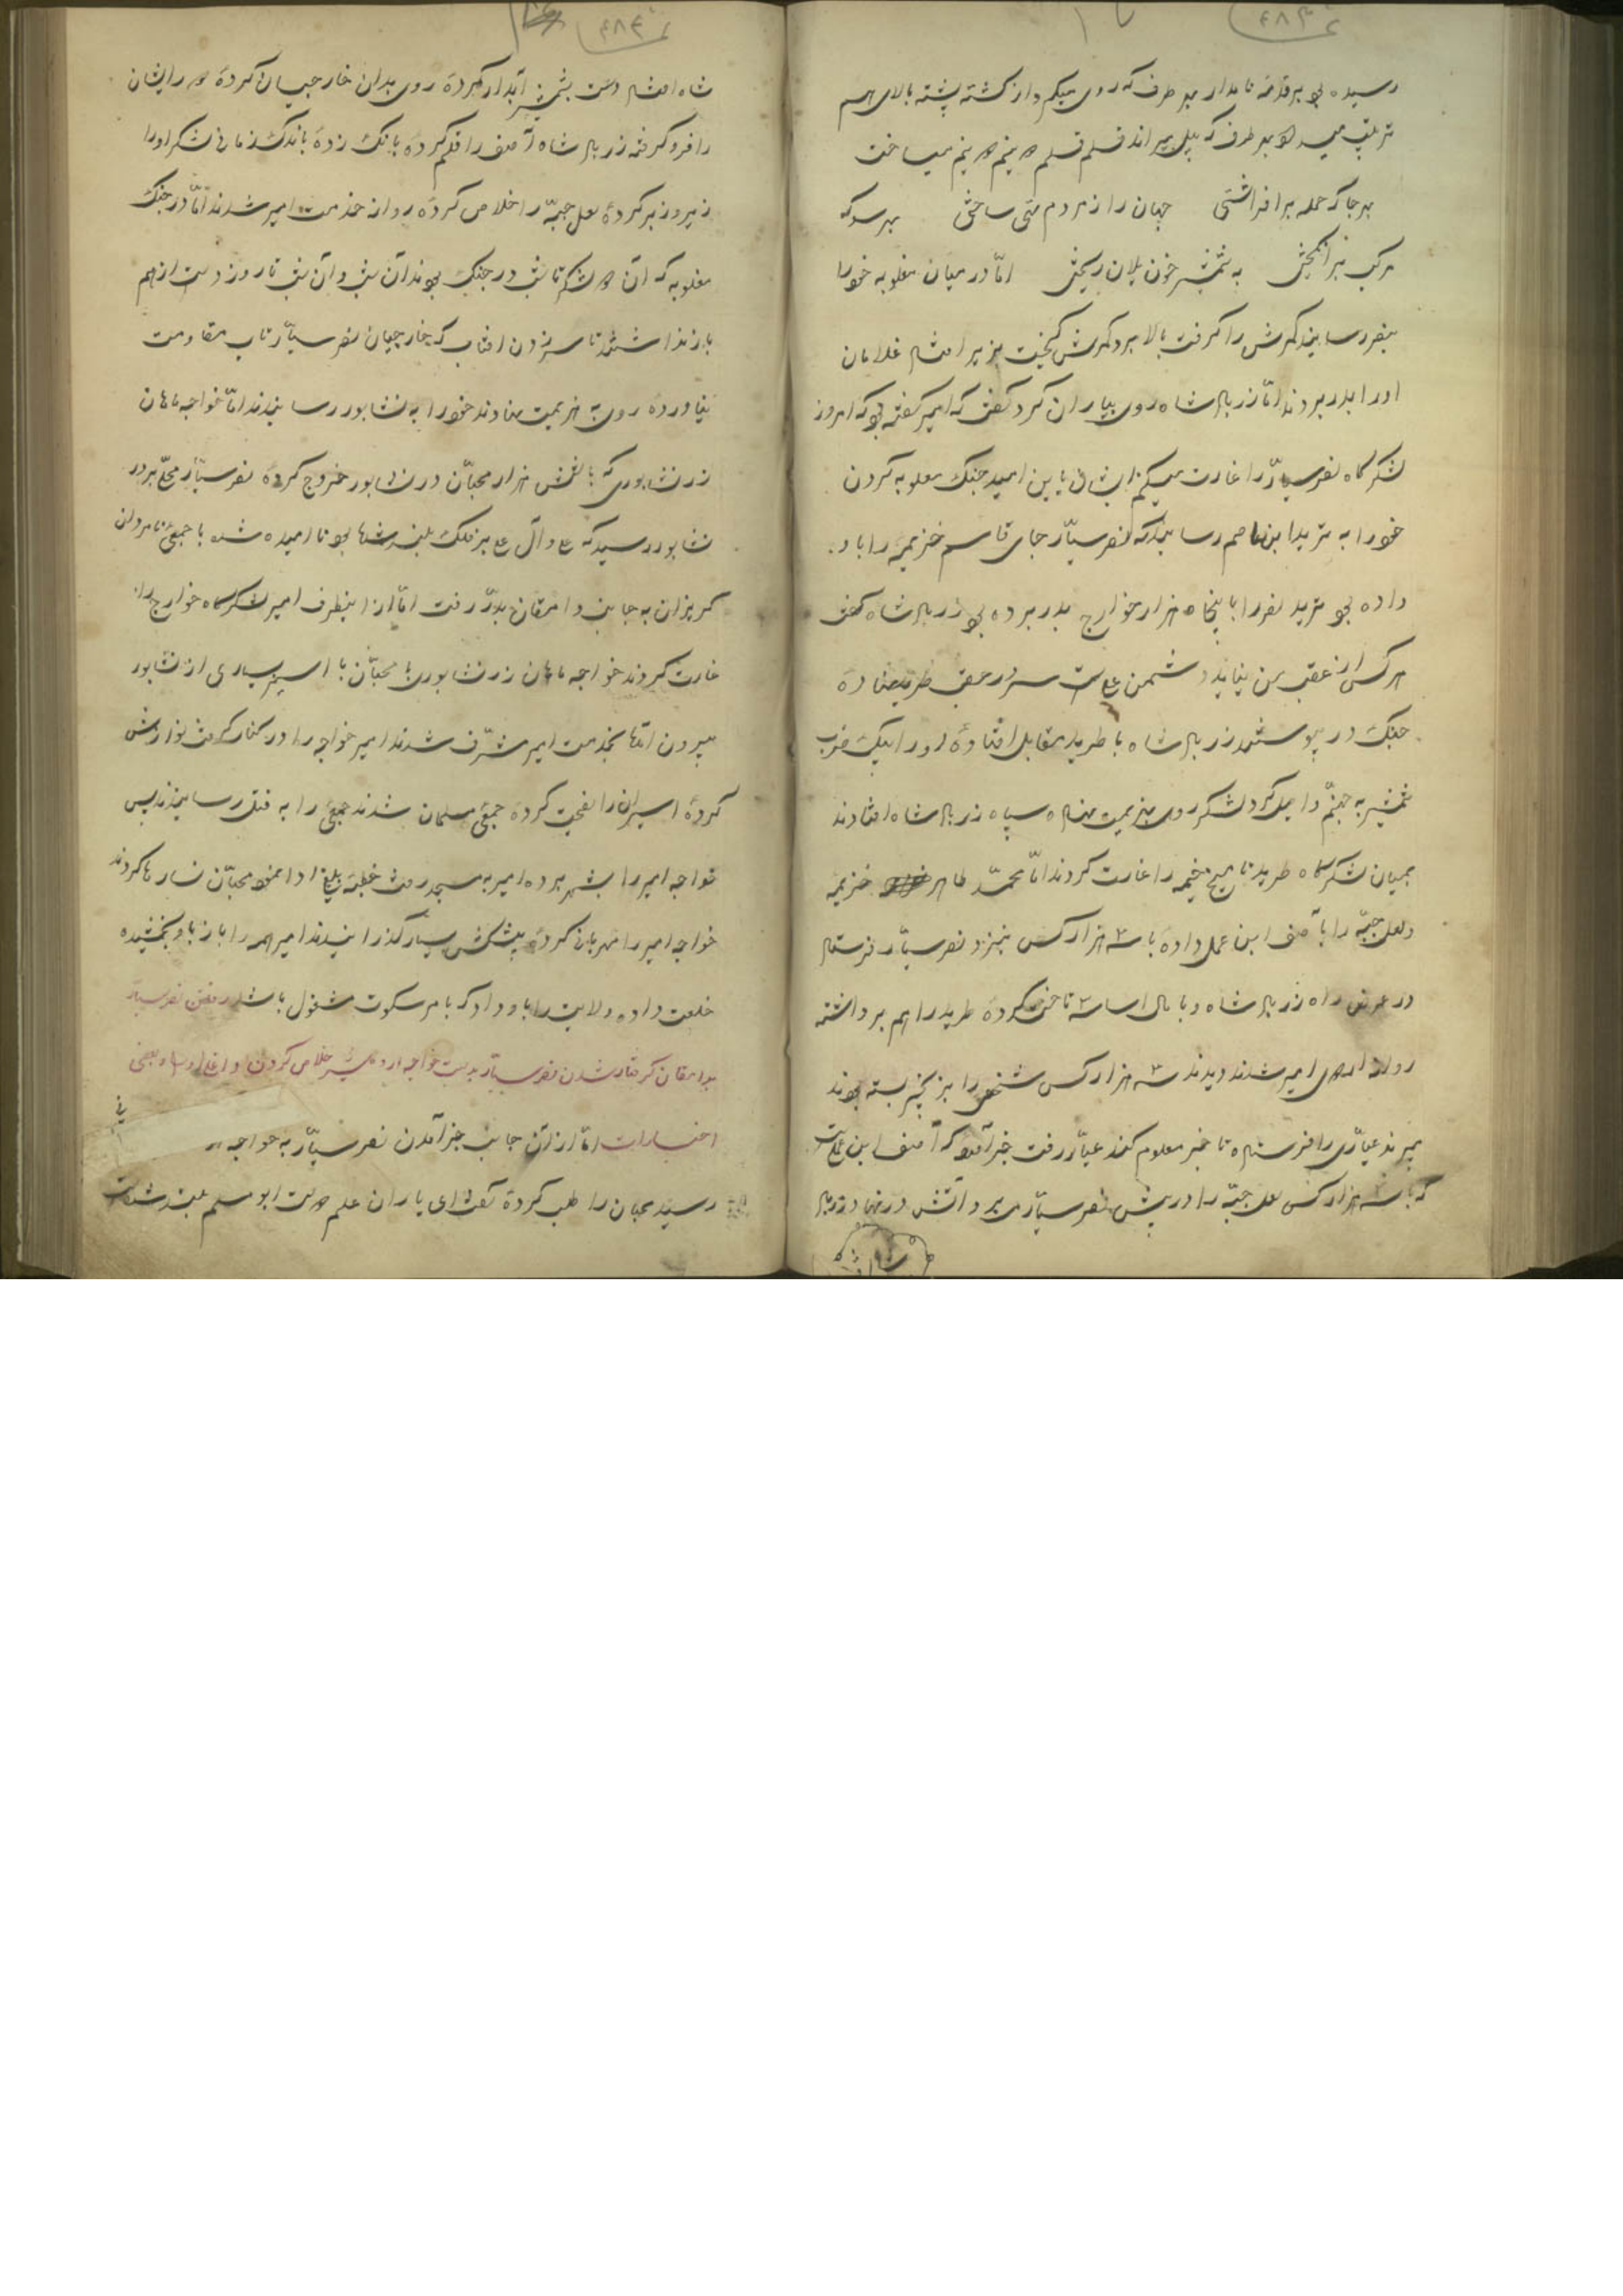 رسیده بود هر قدمه نامدار بهر طرف که روی میکرد از کشته پشته بالای هم
ترتیب میداد بهر طرف که پیل میراند قلم قلم نیم نیم میساخت
بهر جا که حمله برافراشتی جهان را ز مردم تهی ساختی بهر سو که
مرکب برانگیختی به شمشیر خون یلان ریختی امّا در میان مغلوبه خود را
بنصر رسانید کمرش را گرفت بالا برد کمرش گسیخت بزیر افتاد غلامان
او را بدر بردند امّا زربال شاه روی بیاران کرد گفت که امیر گفته بود که امروز
لشکرگاه نصر سیّار را غارت میکنم ایشان باین امید جنگ مغلوبه کردن
خود را به مزید ابن رسانید که نصر سیّار جای قاسم خزیمه را باو
داده بود مزید نصر را با پنجاه هزار خوارج بدر برده بود زربال شاه گفت
هر کس از عقب من نیاید دشمن علیست سر در عقب طرید نهاده
جنگ در پیوستند زربال شاه با طرید مقابل افتاده او را بیک ضرب
شمشیر به جهنّم واصل کرد لشکر روی بهزیمت نهاد سپاه زربال شاه افتادند
بمیان لشکرگاه طرید تا میخ خیمه را غارت کردند امّا محمّد طاهر خزیمه
و لعل جبّه را بآصف ابن عمل داده با سه هزار کس بنزد نصر سیّار فرستاد
در عرض راه زربال شاه و با تاختن کرده طرید را هم برداشته
روانه اردوی امیر شدند دیدند سه هزار کس شخصی را بزنجیر بسته بودند
میبرند عیّاری را فرستاد تا خبر معلوم کند عیّار رفت خبر آورد که آصف ابن عملست
که با سه هزار کس لعل جبّه را در پیش نصر سیّار میبرد آتش در نهاد زربال
شاه افتاد دست بشمشیر آبدار کرده روی بدان خارجیان کرده سر راه ایشان
را فرو گرفته زربال شاه آصف را قلم کرده بانگ زده باندک زمانی لشکر او را
زیر و زبر کرده لعل جبّه را خلاص کرده روانه خدمت امیر شدند امّا در جنگ
مغلوبه که آن دو لشکر تا شب در جنگ بودند آن شب و آن شب تا روز دست از هم
باز نداشتند تا سر زدن افتاب که خارجیان نصر سیّار تاب مقاومت
نیاورده روی به هزیمت نهادند خود را به نشابور رسانیدند امّا خواجه ماهان
زر نشابوری که با شش هزار محبّان در نشابور خروج کرده نصر سیّار محلّی بر در
نشابور رسید که ع و آل ع بر فلک بلند شده بود ناامیده شده با جمعی نامردان
گریزان به جانب دامغان بدر رفت امّا از اینطرف امیر لشکرگاه خوارج را
غارت کردند خواجه ماهان زر نشابوری با محبّان با اسیر بسیاری از نشابور
بیرون آمدند بخدمت امیر مشرّف شدند امیر خواجه را در کنار گرفت نوازش
کرده اسیران را نصیحت کرده جمعی مسلمان شدند جمعی را به قتل رسانیدند پس
خواجه امیر را بشهر برده امیر به مسجد رفت خطبه بلیغ ادا نمود محبّان نثارها کردند
خواجه امیر را مهربانی کرده پیشکش بسیار گذرانیدند امیر همه را باز باو بخشیده
خلعت داده ولایت را باو داد که بامر سکوت مشغول باشد رفتن نصر سیّار
بدامغان گرفتار شدن نصر سیّار بدست خواجه اردشیر خلاص کردن داغلو سیاه بعضی
اختیارات امّا از آن جانب خبر آمدن نصر سیّار به خواجه
رسید محبان را طلب کرده گفت ای یاران علم دولت ابو مسلم بلند شده است